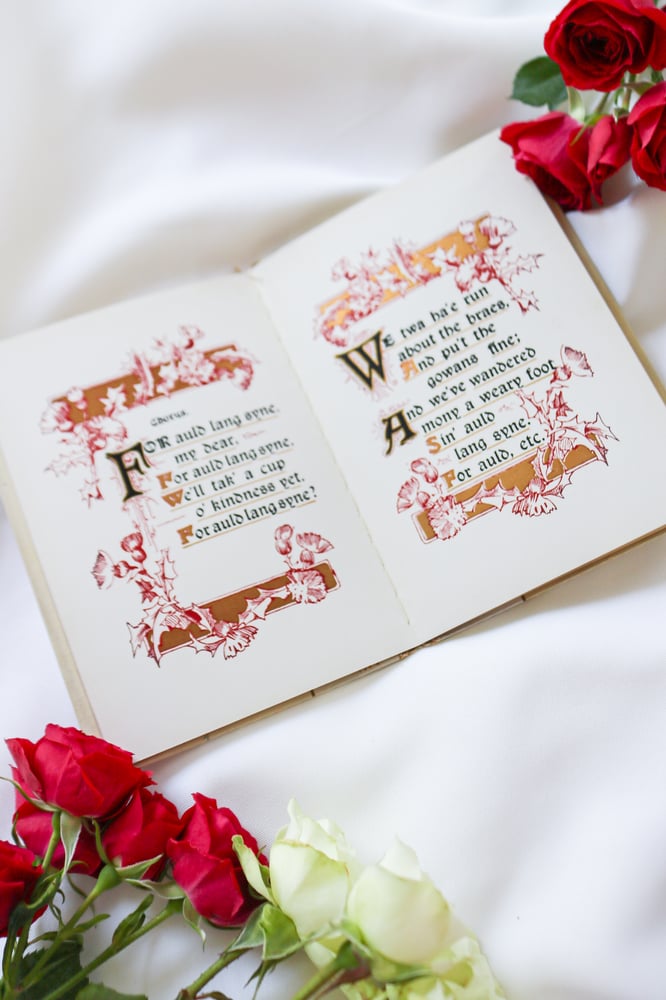 Chorus.
FOR auld lang syne,
my dear,
For auld lang syne,
We'll tak' a cup
o' kindness yet,
For auld lang syne?
WE twa ha'e run
about the braes,
And pu't the
gowans fine;
And we've wandered
mony a weary foot
Sin' auld
lang syne.
For auld, etc.